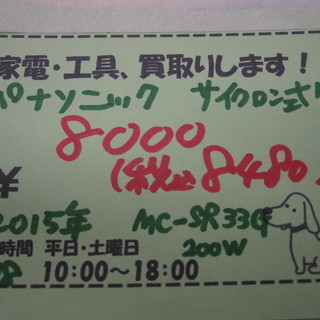 家電・工具、買取りします!
パナソニック サイクロン式
8000
¥ (税込8480)
2015年 MC-SR33G
時間 平日・土曜日 200W
10:00～18:00